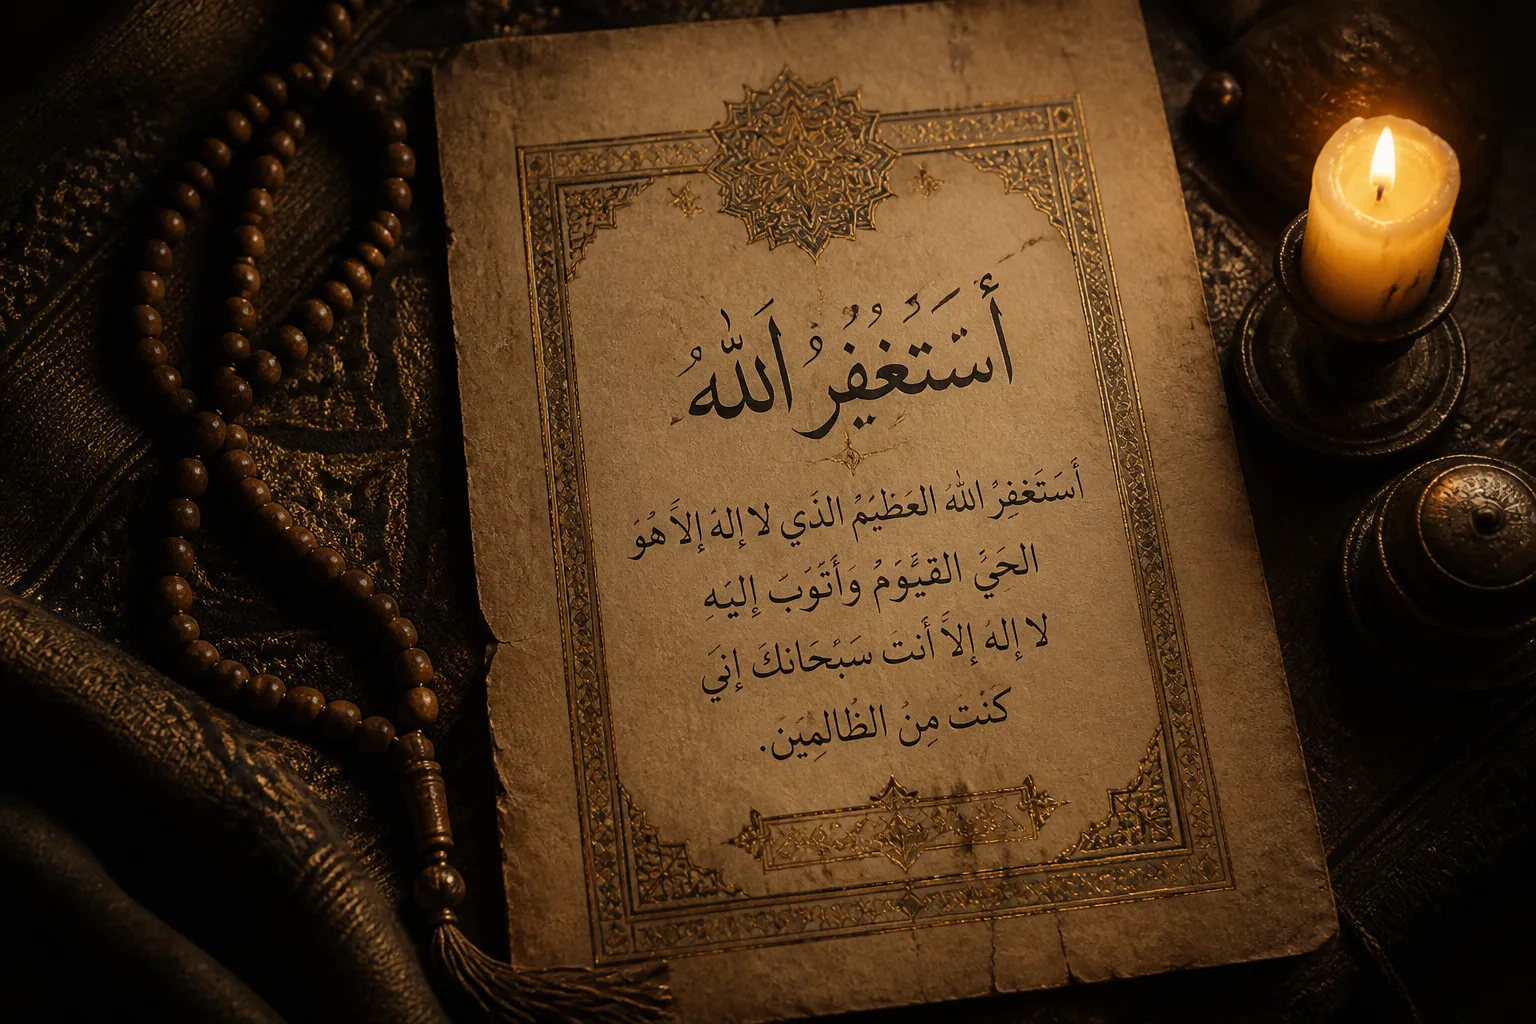 أَسْتَغْفِرُ اللَّهُ
أَسْتَغْفِرُ اللهُ العَظِيْمُ الذَي لا إلهَ إلاَّ هُوَ
الحَيَُّ القيَُّوَمُ وَأَتَوَبَ إِليَهِ
لا إلهُ إلاَّ أَنتَ سَبْحَانكَ إنيَ
كَنْتَ مِنُ الظُالمِيَنَ.